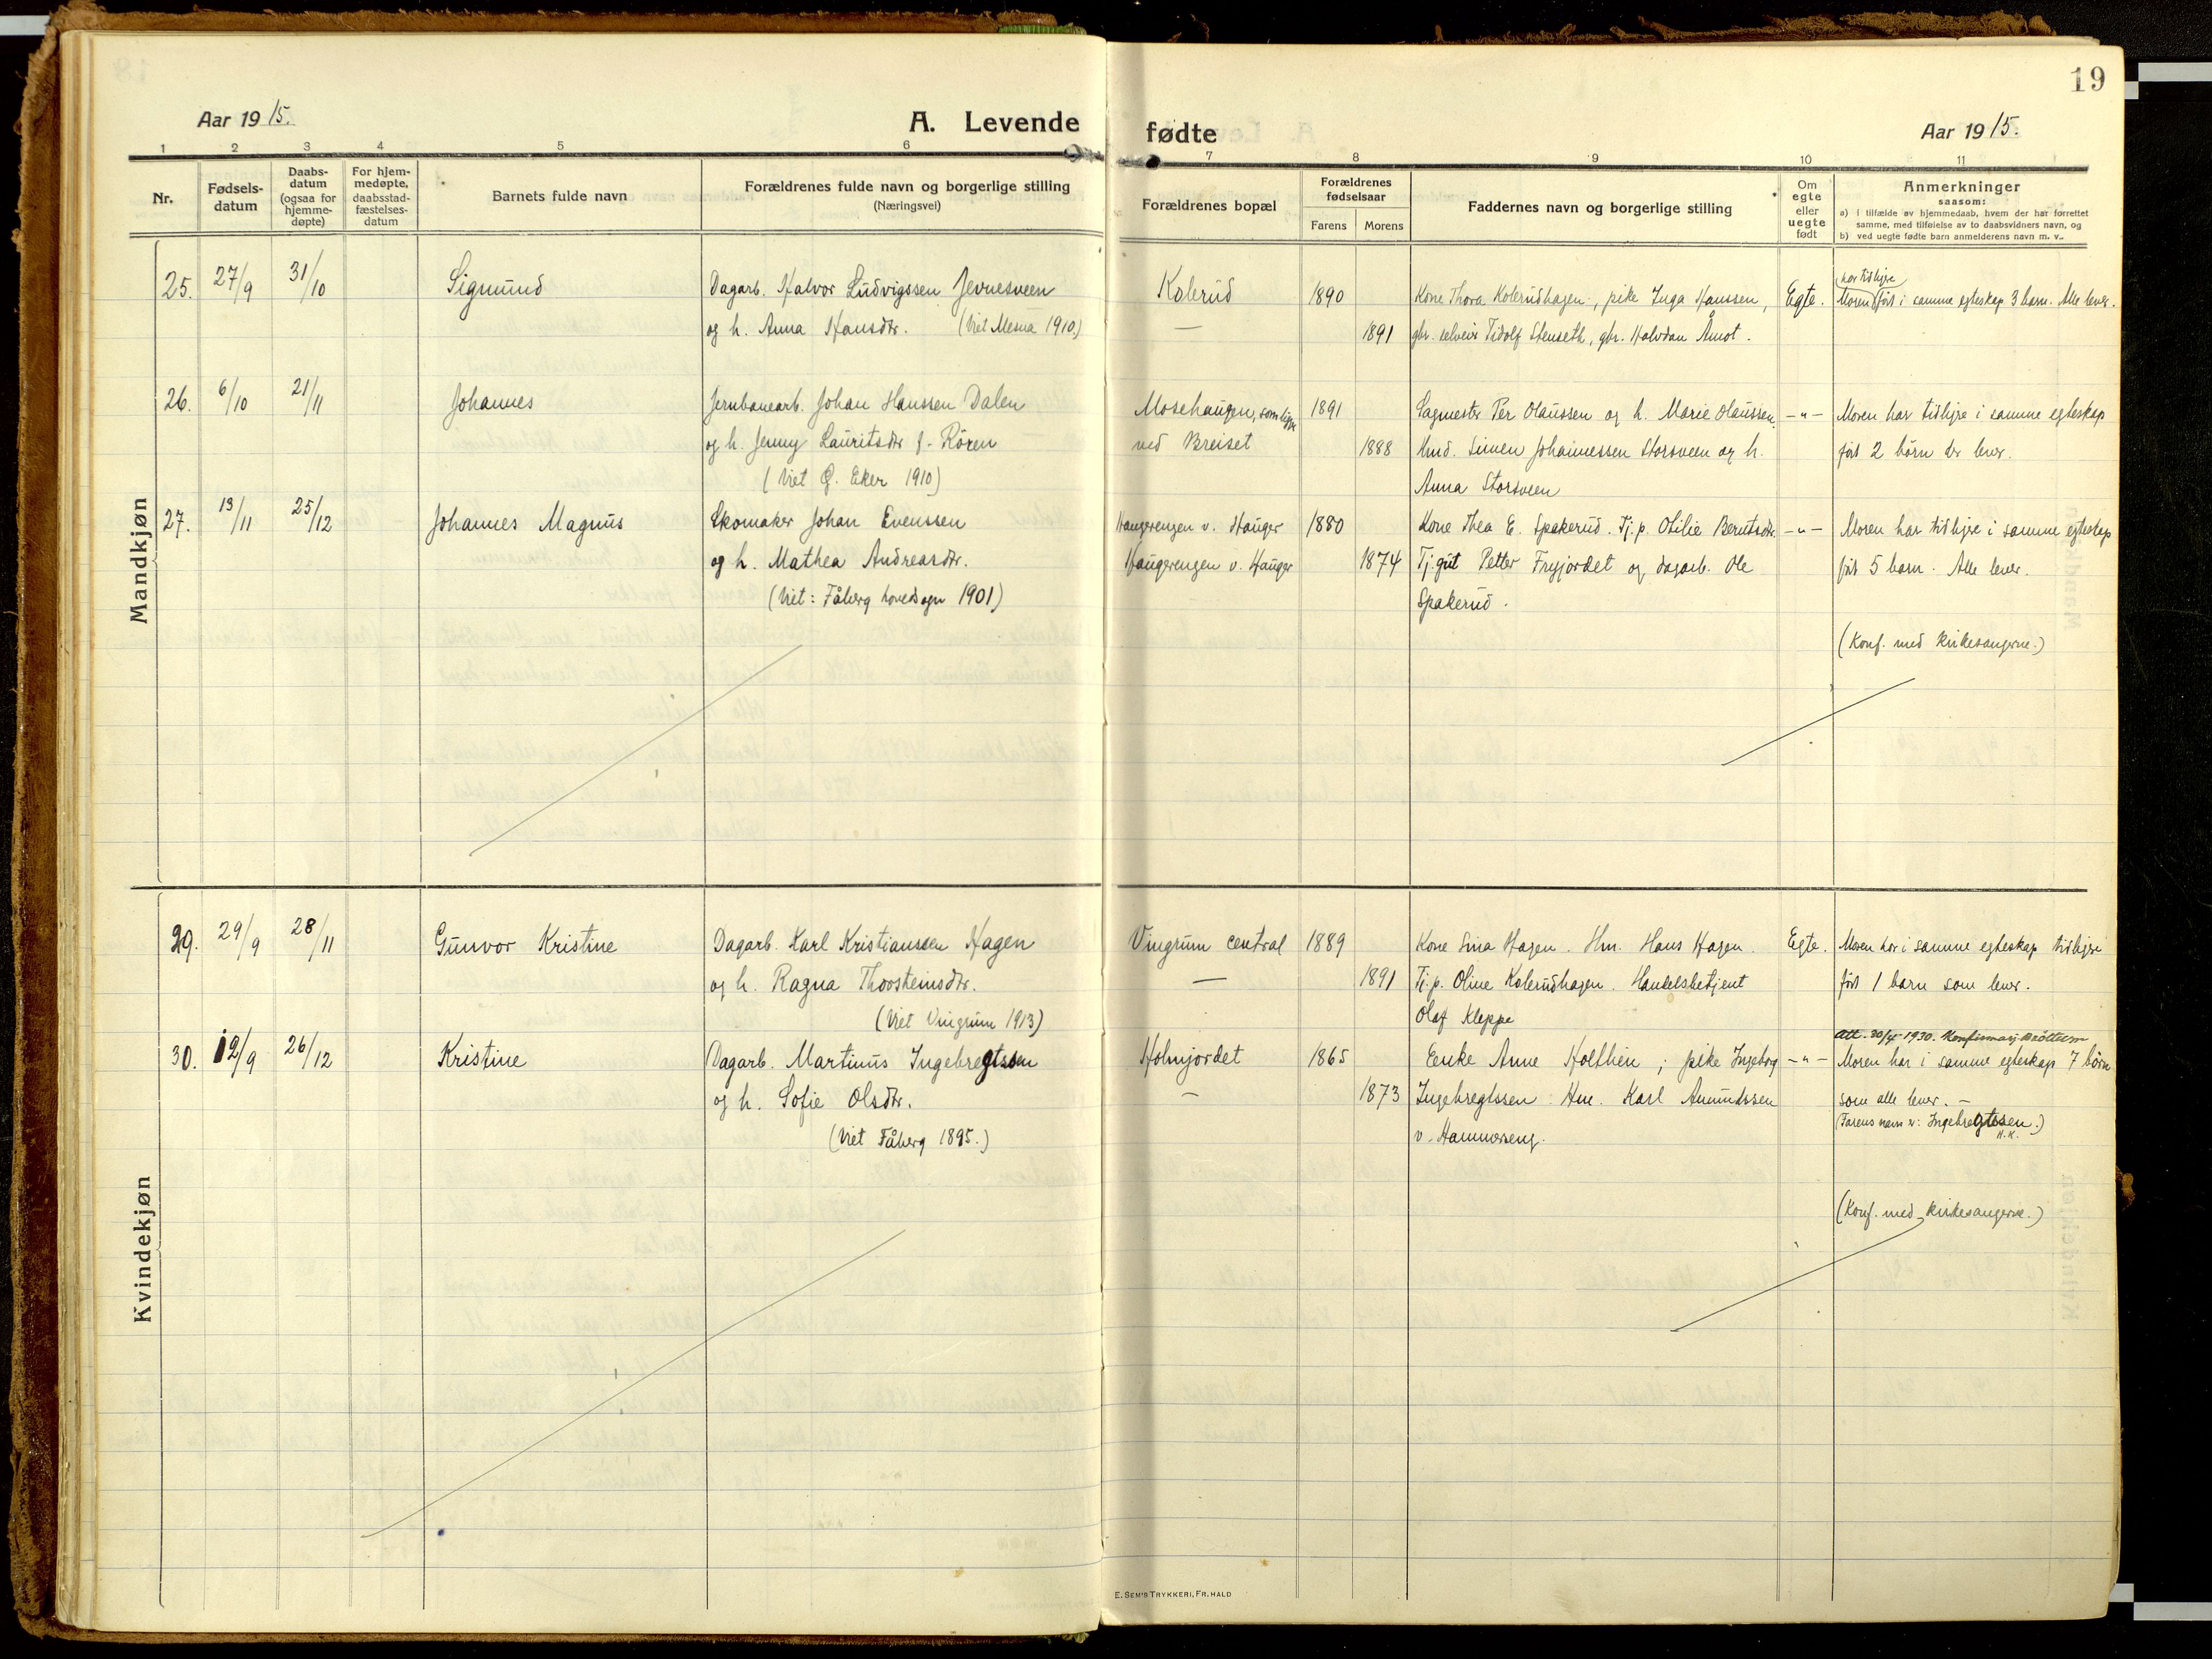 19
Aar 1915.
A. Levende
fødte
Aar 1915.
1 2 3 4 5 6 7 8 9 10 11
Nr.
Fødsels-
datum
Daabs-
datum
(ogsaa for
hjemme-
døpte)
For hjem-
medøpte,
daabsstad-
fæstelses-
datum
Barnets fulde navn
Forældrenes fulde navn og borgerlige stilling
(Næringsvei)
Forældrenes bopæl
Forældrenes
fødselsaar
Farens Morens
Faddernes navn og borgerlige stilling
Om
egte
eller
uegte
født
Anmerkninger
saasom:
a) i tilfælde av hjemmedaab, hvem der har forrettet
samme, med tilføielse av to daabsvidners navn, og
b) ved uegte fødte barn anmelderens navn m. v..
Mandkjøn
25. 27/9 31/10 Sigmund Dagarb. Halvor Ludvigssen Jevnesveen Kolerud 1890 Kone Thora Kolerudhagen, pike Inga Hanssen, Egte. Moren har tidligre født i samme egteskap 3 barn. Alle lever.
og h. Anna Hansdtr. (Viet Mesna 1910.) — 1891 gbr. selveier Tidolf Stenseth, gbr. Halvdan Åmot.
26. 6/10 21/11 Johannes Jernbanearb. Johan Hanssen Dalen Mosehaugen, som ligger 1891 Sagmester Per Olaussen og h. Marie Olaussen. —„— Moren har tidligre i samme egteskap
og h. Jenny Lauritsdtr f. Rören ved Breiset 1888 Simen Johannessen Storsveen og h. født 2 börn der lever.
(Viet Ø. Eker 1910) Anna Storsveen
27. 13/11 25/12 Johannes Magnus Skomaker Johan Evenssen Haugerengen v. Hauger 1880 Kone Thea E. Spakerud. Tj.p. Otilie Berntsdtr. —„— Moren har tidligre i samme egteskap
og h. Mathea Andreasdtr. Haugerengen v. Hauger 1874 Tj.gut Petter Fryjordet og dagarb. Ole født 5 barn. Alle lever.
(Viet: Fåberg hovedsogn 1901) Spakerud.
(Konf. med kirkesangerne.)
Kvindekjøn
29. 29/9 28/11 Gunvor Kristine Dagarb. Karl Kristianssen Hagen Vingrum central 1889 Kone Sina Hagen. Hm. Hans Hagen. Egte. Moren har i samme egteskap tidligre
og h. Ragna Thorsteinsdtr. — 1891 Tj.p. Oline Kolerudhagen. Handelsbetjent født 1 barn som lever.
(Viet Vingrum 1913) Olaf Kleppe
Att. 30/4 1930. Brøttum
30. 12/9 26/12 Kristine Dagarb. Martinus Ingebregtsen Holmjordet 1865 Enke Anne Holthen; pike Ingeborg —„— Moren har i samme egteskap 7 börn
og h. Sofie Olsdtr. — 1873 Ingebregtssen. Hm. Karl Amundssen som alle lever. —
(Viet Fåberg 1895.) v. Hammerseng. (Farens navn er: Ingebregtssen.)
H.K.
(Konf. med kirkesangerne.)
E. SEM'S TRYKKERI, FR.HALD